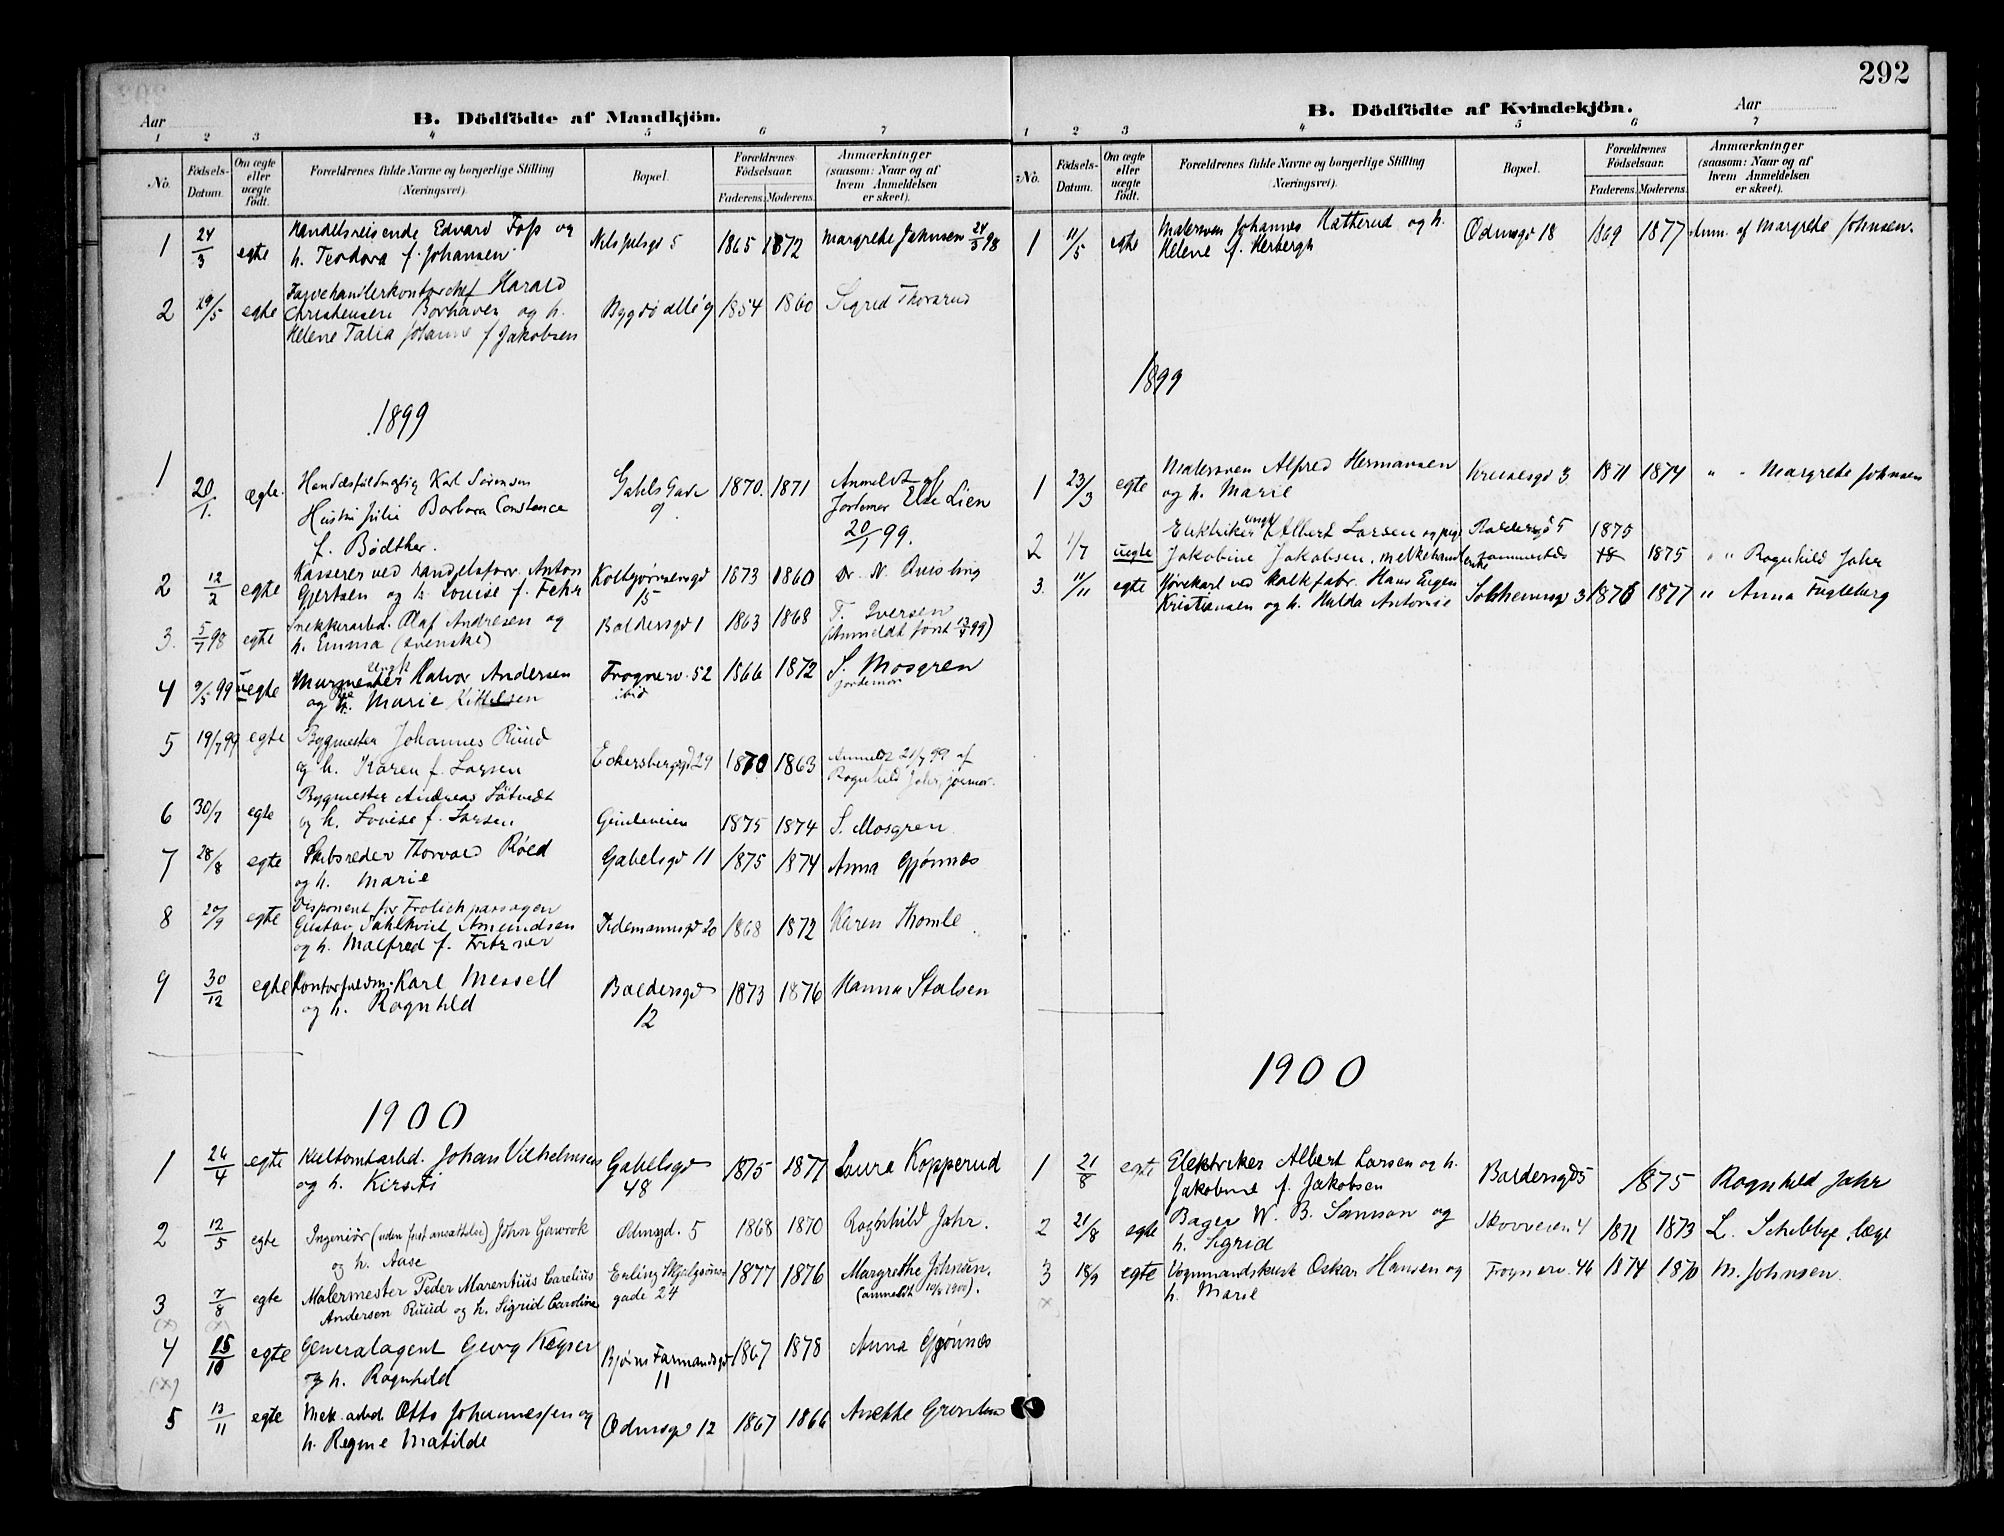 292
Aar
B. Dödfödte af Mandkjön.
1 2 3 4 5 6 7
No.
Födsels-Datum.
Om ægte eller uægte födt.
Forældrenes fulde Navne og borgerlige Stilling (Næringsvei).
Bopæl.
Forældrenes Födselsaar.
Faderens. Moderens.
Anmærkninger (saasom: Naar og af hvem Anmeldelsen er skeet).
1 24/3 egte Handelsreisende Edvard Foss og Nils Juelsgd 5 1865 1872 Margrethe Johnsen 24/3 98
h. Teodora f. Johansen
2 29/5 egte Harald Bygdø allé 9 1854 1860 Sigrid Thorsrud
Christensen Borhaven og h.
Helene Talia Johanne f Jakobsen
1899
1 20/1. ægte. Karl Sørensen Gabels Gade 9 1870. 1871 Anmeldt af
Hustru Julie Barbara Constance Jordemor Else Lien
f. Bødtker. 20/1 99.
2 12/2 egte Kasserer ved handelsforr. Anton Kolbjørnsensgd 15 1873 1860 Dr. N. Quisling
Gjertsen og h. Louise f. Fehr
3. 5/7 98 egte Snekkerarbd. Olaf Andresen og Baldersgd 1 1863 1868 T. Iversen
h. Emma (svenske) (Anmeldt først 99)
4 9/5 99 uegte Murmester ungk Halvor Andersen Frognerv. 52 1866 1872 S. Mosgren
og Marie Kittelsen ibid jordemor
5 19/7 99 egte Bygmester Johannes Ruud Eckersbergsgd 29 1870 1863 Anmeldt 21/7 99 af
og h. Karen f. Larsen Ragnhild Jahr, jormor.
6 30/7 egte Bygmester Andreas Søtvedt 1875 1874 S. Mosgren
og h. Lovise f. Larsen
7 28/8 egte Skibsreder Thorvald Røed Gabelsgd 11 1875 1874 Anna Gjønnæs
og h. Marie
8 20/9 egte Disponent for Frolich passagen Tidemannsgd 20 1868 1872 Karen Thomle
Gustav Amundsen
og h. Malfred f. Fritzner
9 30/12 egte Kontorfuldm. Karl Messell Baldersgd 12 1873 1876 Hanna Stalsen
og h. Ragnhild
1900
1 24/4 egte Johan Vilhelmsen Gabelsgd 48 1875 1877 Laura Kopperud
og h. Kirsti
2 12/5 egte Ingeniör (uden fast ansættelse) John Odinsgd. 5 1868 1870 Ragnhild Jahr.
og h. Aase
3 7/8 egte Malermester Peder Marentius Carelius Erling Skjalgsøns- 1877 1876 Margrethe Johnsen.
(x) (x) Andersen Ruud og h. Sigrid Caroline gade 24 (anmeldt 10/8 1900).
4 15/10 egte Generalagent Georg Keyser Bjørn Farmandsgd 11 1867 1878 Anna Gjønnæs
(x) og h. Ragnhild
5 13/11 egte Mek. arbd. Otto Johannessen og Odinsgd 12 1867 1866 Anette
h. Regine Matilde
B. Dödfödte af Kvindekjön.
Aar
1 2 3 4 5 6 7
No.
Födsels-Datum.
Om ægte eller uægte födt.
Forældrenes fulde Navne og borgerlige Stilling (Næringsvei).
Bopæl.
Forældrenes Födselsaar.
Faderens. Moderens.
Anmærkninger (saasom: Naar og af hvem Anmeldelsen er skeet).
1 11/5 egte Malersven Johannes Hatterud og h. Odinsgd 18 1869 1877 Anm. af Margrete Johnsen.
Helene f. Herbergh
1899
1 23/3 egte Malersven Alfred Hermansen Kruesesgd 3 1871 1874 " " Margrete Johnsen
og h. Marie
2 1/7 uegte Elektriker ungk Albert Larsen og pige Baldersgd 5 1875
Jakobine Jakobsen, melkehandlerske sammesteds 18 1875 " " Ragnhild Jahr
3. 11/11 egte Kjørekarl ved kalkfabr. Hans Eugen Solheimsgd 3 1876 1877 " Anna Fugleberg
Kristiansen og h. Hulda Antonie
1900
1 21/8 egte Elektriker Albert Larsen og h. Baldersgd 5 1875 Ragnhild Jahr
Jakobine f. Jakobsen
2 21/8 egte Bager W. B. Samson og Skovveien 4 1871 1873 L. Schibbye, læge
h. Sigrid
3 18/9 egte Vognmandskusk Oskar Hansen og Frognerv. 46 1874 1870 M. Johnsen.
x h. Marie